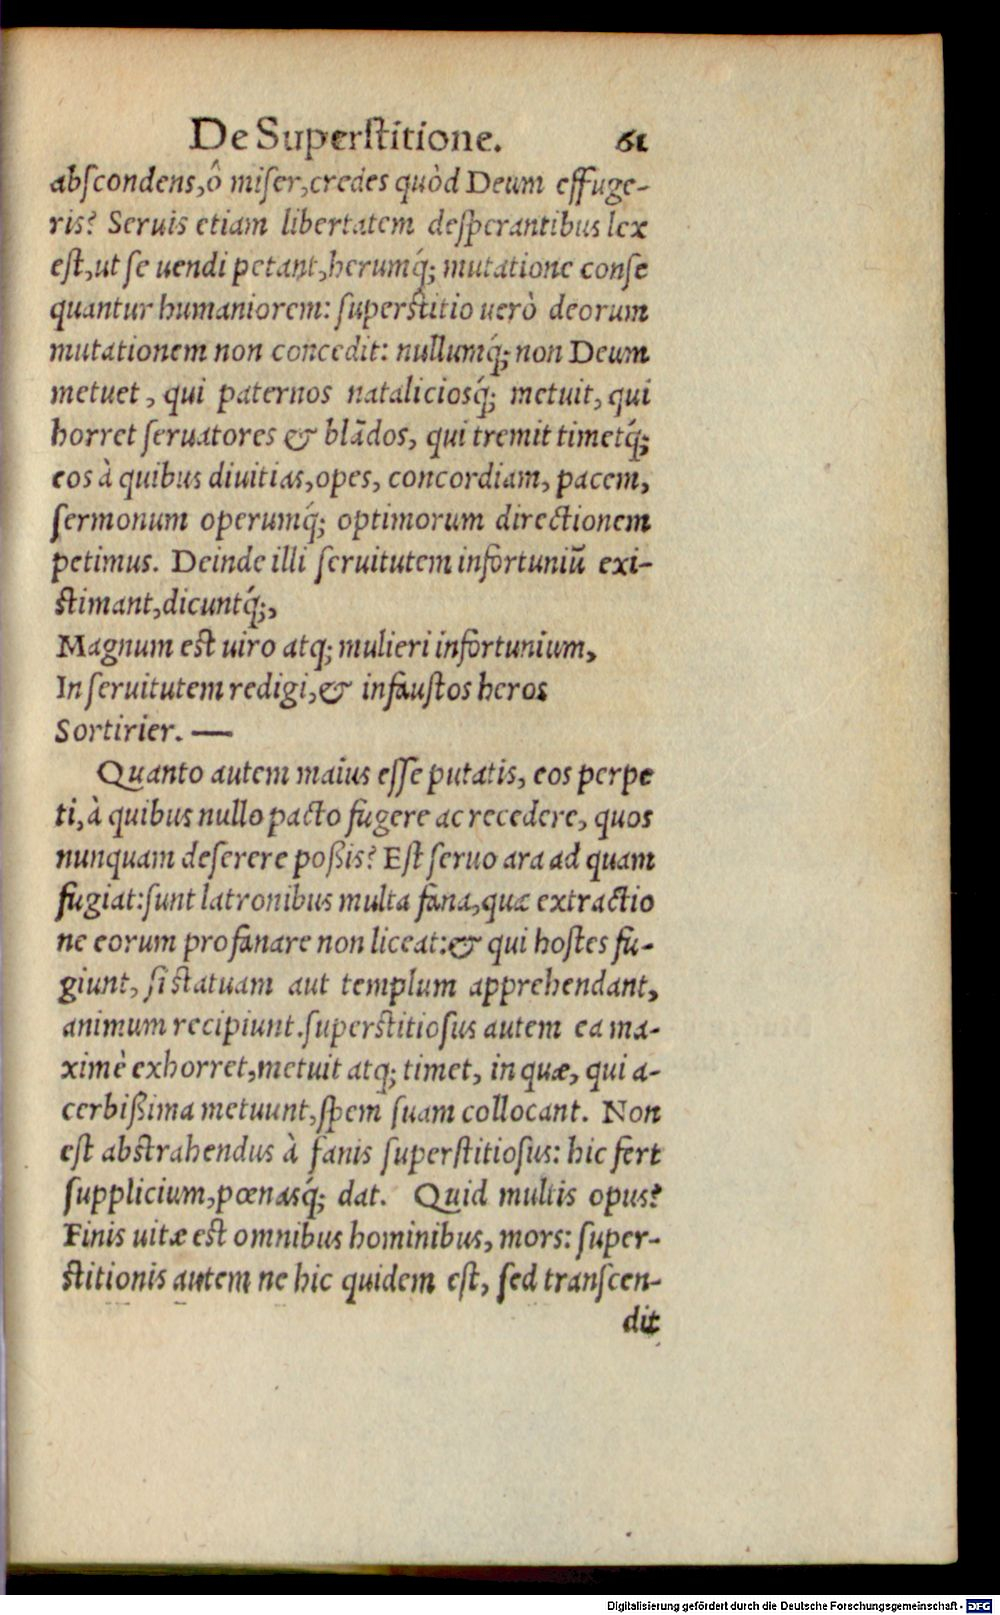 De Superstitione. 61
abſcondens, ô miſer, credes quòd Deum effuge-
ris? Seruis etiam libertatem deſperantibus lex
eſt, ut ſe uendi petant, herumq́; mutatione conſe
quantur humaniorem: ſuperſtitio uerò deorum
mutationem non concedit: nullumq́; non Deum
metuet, qui paternos nataliciosq́; metuit, qui
horret ſeruatores & blãdos, qui tremit timetq́;
eos à quibus diuitias, opes, concordiam, pacem,
ſermonum operumq́; optimorum directionem
petimus. Deinde illi ſeruitutem infortuniũ exi-
ſtimant, dicuntq́;,
Magnum eſt uiro atq; mulieri infortunium,
In ſeruitutem redigi, & infauſtos heros
Sortirier. —
Quanto autem maius eſſe putatis, eos perpe
ti, à quibus nullo pacto fugere ac recedere, quos
nunquam deſerere poßis? Eſt ſeruo ara ad quam
fugiat: ſunt latronibus multa fana, quæ extractio
ne eorum profanare non liceat: & qui hoſtes fu-
giunt, ſi ſtatuam aut templum apprehendant,
animum recipiunt. ſuperſtitioſus autem ea ma-
ximè exhorret, metuit atq; timet, in quæ, qui a-
cerbißima metuunt, ſpem ſuam collocant. Non
eſt abſtrahendus à fanis ſuperſtitioſus: hic fert
ſupplicium, pœnasq́; dat. Quid multis opus?
Finis uitæ eſt omnibus hominibus, mors: ſuper-
ſtitionis autem ne hic quidem eſt, ſed tranſcen-
dit
Digitalisierung gefördert durch die Deutsche Forschungsgemeinschaft - DFG